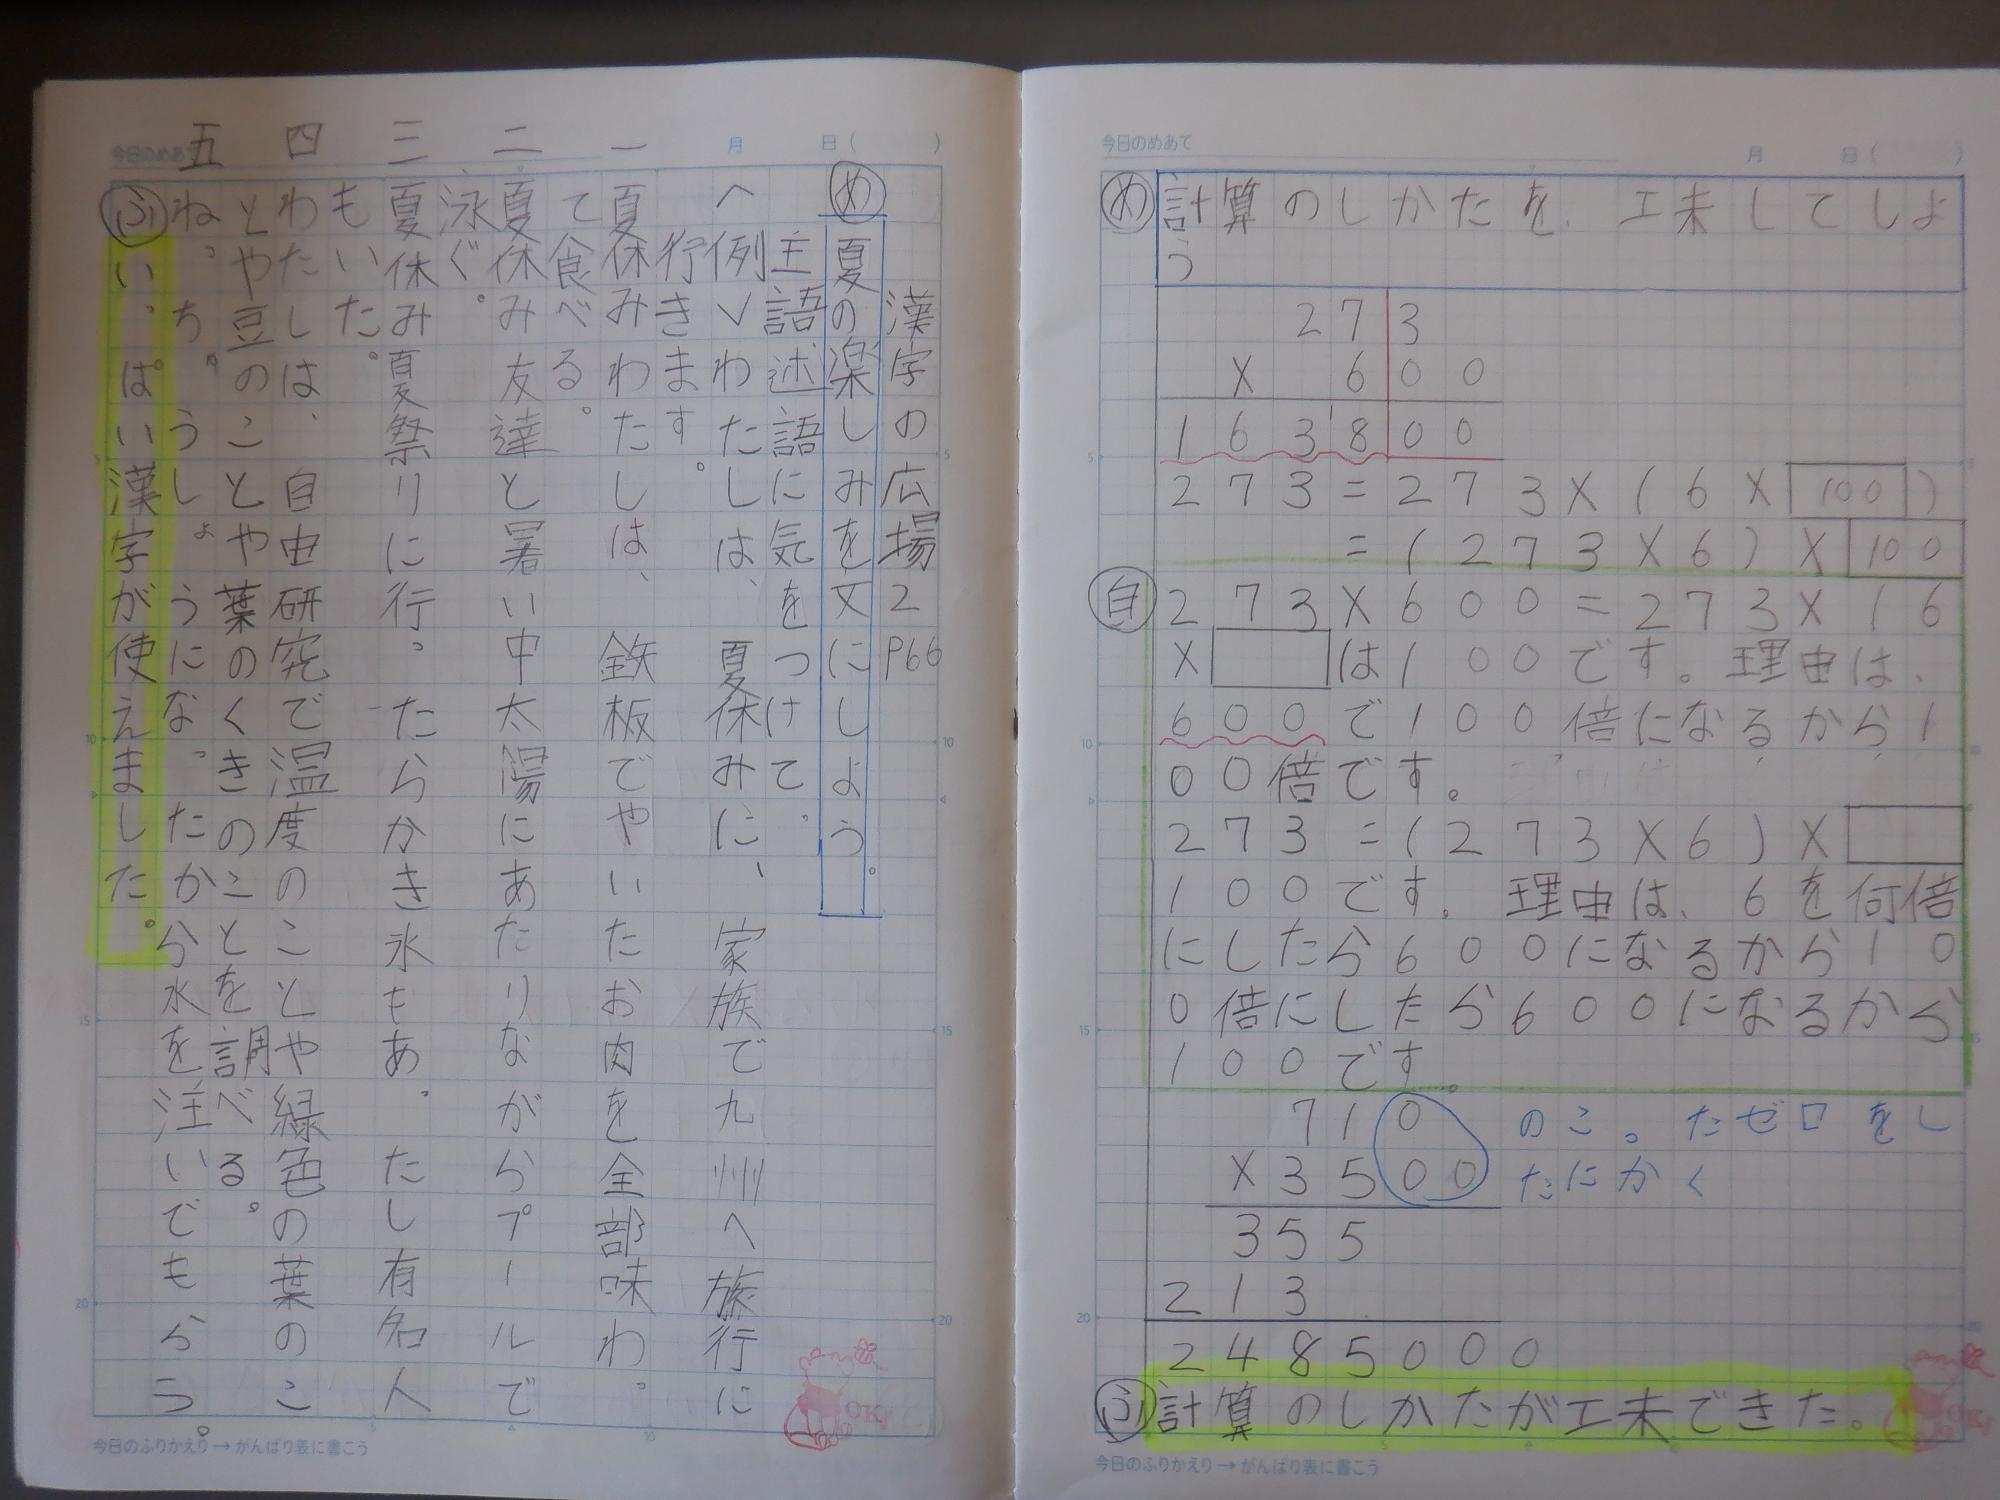 今日のめあて
月 日( )
漢字の広場2 P66
め 夏の楽しみを文にしよう。
主語述語に気をつけて。
へ例>わたしは、夏休みに、家族で九州へ旅行に
行きます。
一 夏休みわたしは、鉄板でやいたお肉を全部味わっ
て食べる。
二 夏休み友達と暑い中太陽にあたりながらプールで
泳ぐ。
三 夏休み夏祭りに行ったらかき氷もあったし有名人
もいた。
四 わたしは、自由研究で温度のことや緑色の葉のこ
とや豆のことや葉のくきのことを調べる。
五 ねっちゅうしょうになったから水を注いでもらう。
ふ いっぱい漢字が使えました。
今日のふりかえり→がんばり表に書こう
OK!
今日のめあて
月 日( )
め 計算のしかたを、工未してしよ
う
273
×600
163800
273=273×(6×100)
=(273×6)×100
自 273×600=273×16
×□は100です。理由は、
600で100倍になるから1
00倍です。
273=(273×6)×□
100です。理由は、6を何倍
にしたら600になるから10
0倍にしたら600になるから
100です。
710 のこったゼロをし
×3500 たにかく
355
213
2485000
ふ 計算のしかたが工未できた。
OK!
今日のふりかえり→がんばり表に書こう